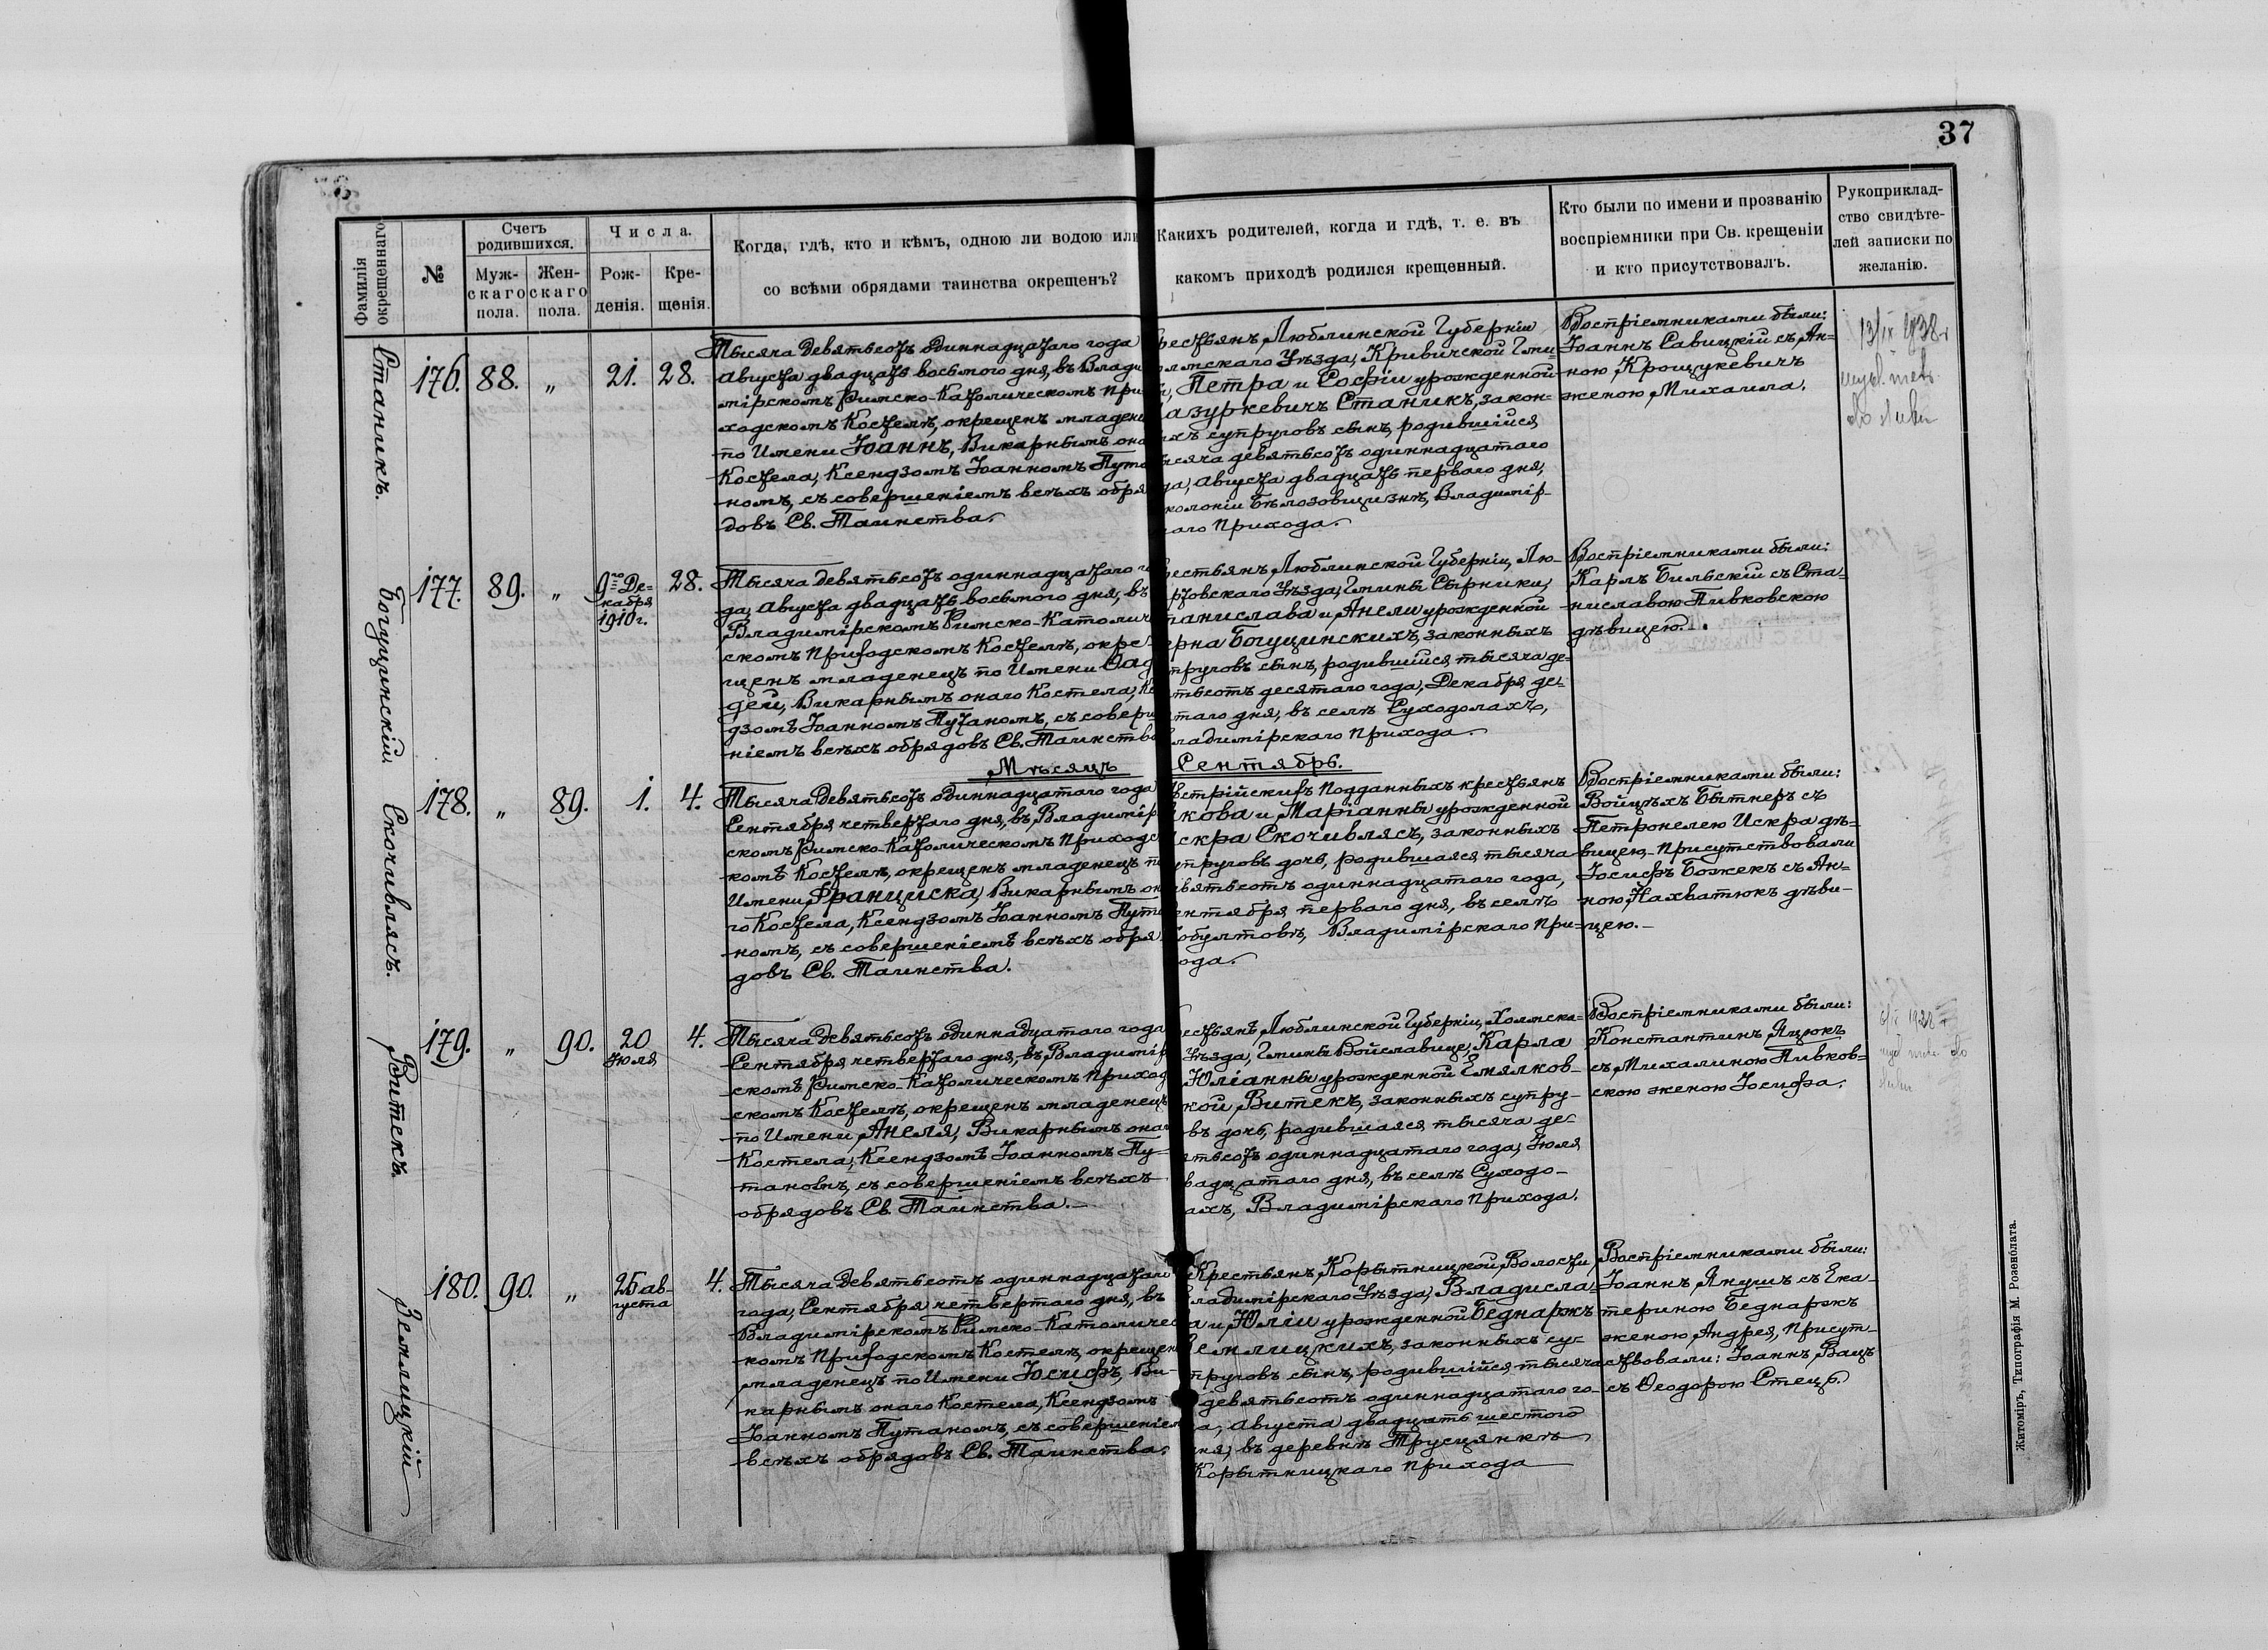 37
Фамилія
окрещеннаго
№
Счетъ
родившихся.
Муж-
скаго
пола.
Жен-
скаго
пола.
Числа.
Рож-
денія.
Кре-
щенія.
Когда, гдѣ, кто и кѣмъ, одною ли водою или
со всѣми обрядами таинства окрещенъ?
Какихъ родителей, когда и гдѣ, т. е. въ
какомъ приходѣ родился крещенный.
Кто были по имени и прозванію
воспріемники при Св. крещеніи
и кто присутствовалъ.
Рукоприклад-
ство свидѣте-
лей записки по
желанію.
Станикъ.
176. 88. „ 21. 28.
Тысяча девятьсотъ одиннадцатаго года
Августа двадцать восьмого дня, въ Влади
мірскомъ Римско-Католическомъ При
ходскомъ Костелѣ, окрещенъ младене
по Имени Іоаннъ, Викарнымъ она
Костела, Ксендзомъ Іоанномъ Пута
номъ, съ совершеніемъ всѣхъ обря
довъ Св. Таинства.
рестьянъ, Люблинской Губерніи
олмскаго Уѣзда, Кривичской Гми-
, Петра и Софіи урожденной
азуркевичъ Станикъ, закон-
ыхъ супруговъ сынъ, родившійся
ысяча девятьсотъ одиннадцатаго
да, Августа двадцать перваго дня,
колоніи Бѣлозовщизнѣ, Владимір-
аго Прихода.
Воспріемниками были:
Іоаннъ Савицкій съ Ан-
ною, Крощукевичъ
женою, Михаила.
13/IX 1938 r
Богущинскій
177. 89. „ 9го Де-
кабря
1910 г. 28.
Тысяча девятьсотъ одиннадцатаго го
да, Августа двадцать восьмого дня, въ
Владимірскомъ Римско-Католиче
скомъ Приходскомъ Костелѣ, окре
щенъ младенецъ по Имени Ѳад
дей, Викарнымъ онаго Костела, Ксе
дзомъ Іоанномъ Путаномъ, съ соверше
ніемъ всѣхъ обрядовъ Св. Таинства
рестьянъ, Люблинской Губерніи, Лю-
ртовскаго Уѣзда, Гмины Сырники,
танислава и Анели урожденной
ерна Богущинскихъ, законныхъ
пруговъ сынъ, родившійся тысяча де-
тьсотъ десятаго года, Декабря де-
таго дня, въ селѣ Суходолахъ,
ладимірскаго Прихода.
Воспріемниками были:
Карлъ Бильскій съ Ста-
ниславою Пивковскою
дѣвицею.
Мѣсяцъ Сентябрь.
Скочивлясъ.
178. „ 89. 1. 4.
Тысяча девятьсотъ одиннадцатаго года
Сентября четвертаго дня, въ Владимір
скомъ Римско-Католическомъ Приходс
комъ Костелѣ, окрещенъ младенецъ по
Имени, Франциска, Викарнымъ она
го Костела, Ксендзомъ Іоанномъ Пута
номъ, съ совершеніемъ всѣхъ обря
довъ Св. Таинства.
встрійскихъ Подданныхъ крестьянъ
кова и, Маріанны урожденной
скра Скочивлясъ, законныхъ
упруговъ дочь, родившаяся тысяча
евятьсотъ одиннадцатаго года,
ентября перваго дня, въ селѣ
обултовѣ, Владимірскаго При-
ода.
Воспріемниками были:
Войцѣхъ Бытнеръ съ
Петронелею Искра дѣ-
вицею,- Присутствовали
Іосифъ Божекъ съ Ан-
ною, Нахватюкъ дѣви-
цею.-
Витекъ
179. „ 90. 20
Іюля 4.
Тысяча девятьсотъ одиннадцатаго года
Сентября четвертаго дня, въ Владимір
скомъ Римско-Католическомъ Приход
скомъ Костелѣ, окрещенъ младенецъ
по Имени, Анеля, Викарнымъ онаг
Костела, Ксендзомъ Іоанномъ Пу-
таномъ, съ совершеніемъ всѣхъ
обрядовъ Св. Таинства.-
рестьянъ, Люблинской Губерніи, Холмска-
Уѣзда, Гмины Войславице, Карла
Юліанны урожденной Гмялков-
кой, Витекъ, законныхъ супру-
въ дочь, родившаяся тысяча де-
ятьсотъ одиннадцатаго года, Іюля
вадцатаго дня, въ селѣ Суходо-
ахъ, Владимірскаго Прихода.
Воспріемниками были:
Константинъ, Яцюкъ
съ Михалиною Пивков-
скою женою Іосифа.
Землицкій
180. 90. „ 25 ав-
густа 4.
Тысяча девятьсотъ одиннадцатаго
года, Сентября четвертаго дня, въ
Владимірскомъ Римско-Католичес
комъ Приходскомъ Костелѣ, окрещен
младенецъ по Имени Іосифъ, Ви-
карнымъ онаго Костела, Ксендзомъ
Іоанномъ Путаномъ, съ совершеніем
всѣхъ обрядовъ Св. Таинства.
Крестьянъ, Корытницкой, Волости,
ладимірскаго Уѣзда, Владисла-
а и, Юліи урожденной Беднаржъ
емлицкихъ, законныхъ су-
пруговъ сынъ, родившійся, тысяча
девятьсотъ одиннадцатаго го-
а, Августа двадцать шестого
ня, въ деревнѣ Трусцянкѣ
Корытницкаго Прихода
Воспріемниками были:
Іоаннъ, Янушъ съ Ека-
териною Беднаржъ
женою, Андрея, Присут-
ствовали: Іоаннъ, Вацъ
съ Ѳеодорою Стець.
Житоміръ, Типографія М. Розенблата.